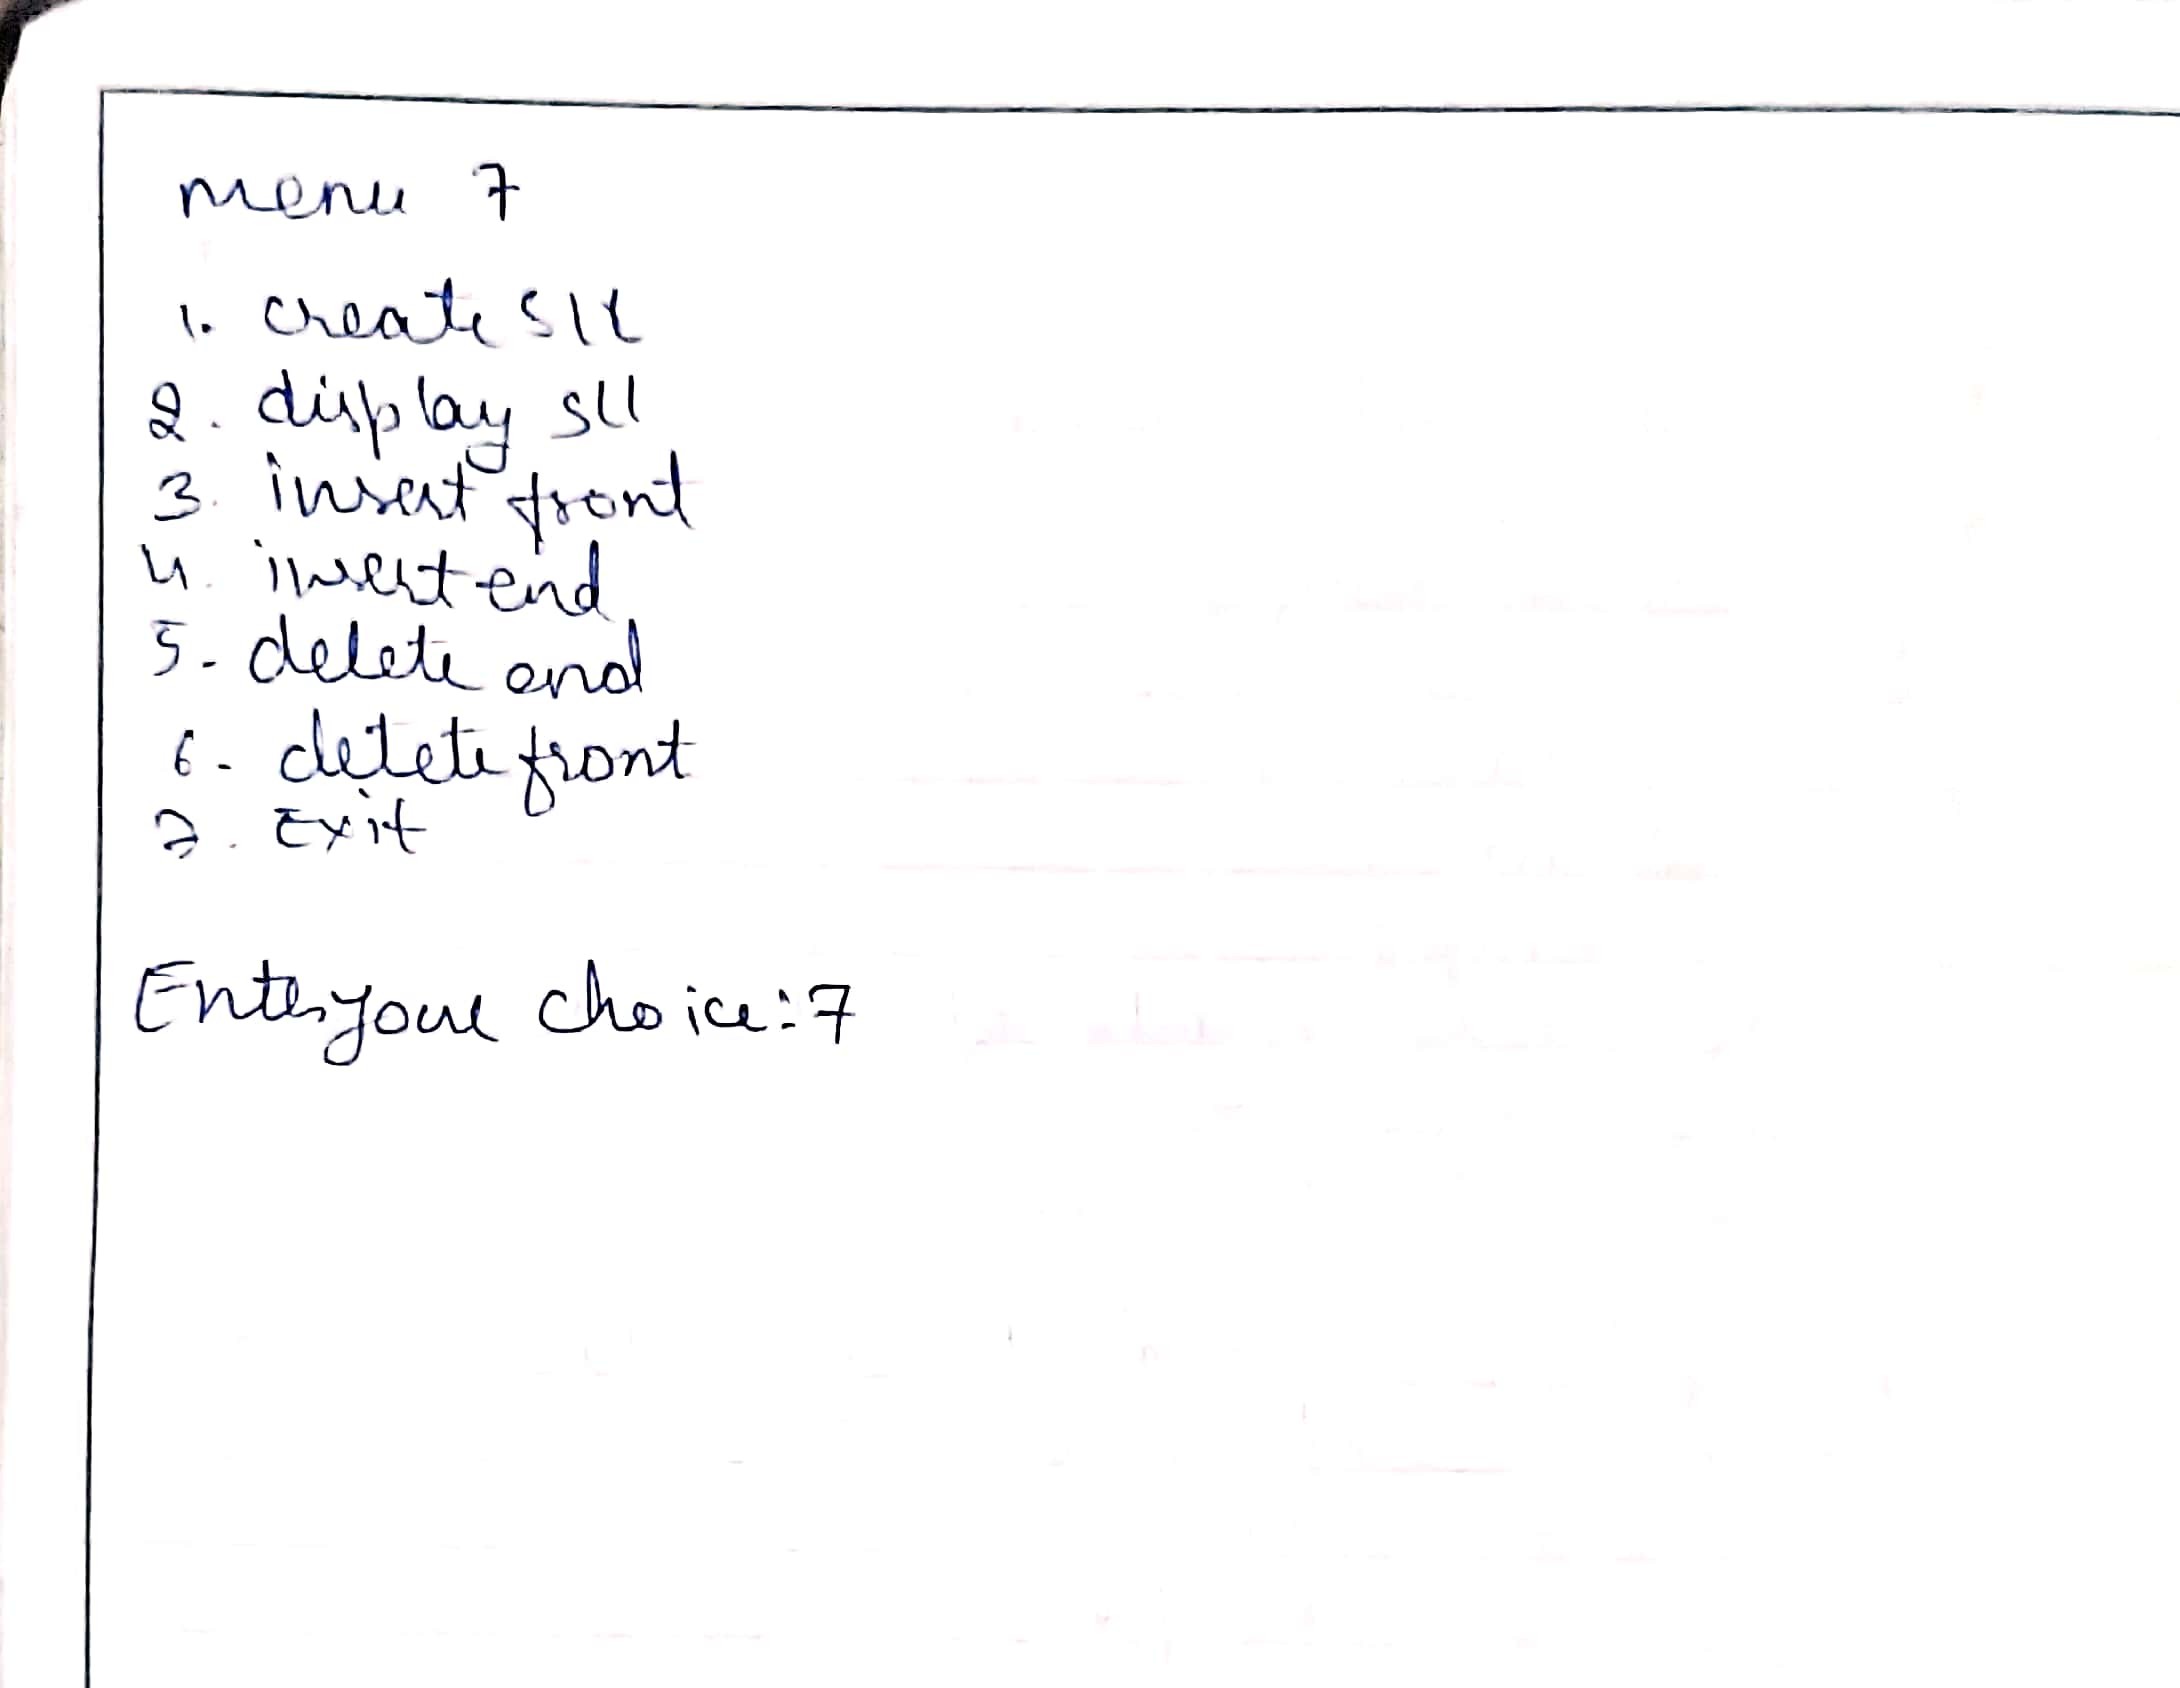 menu 7
1. create sll
2. display sll
3. insert front
4. insert end
5- delete end
6- detete front
7. Exit
Enter your choice:7